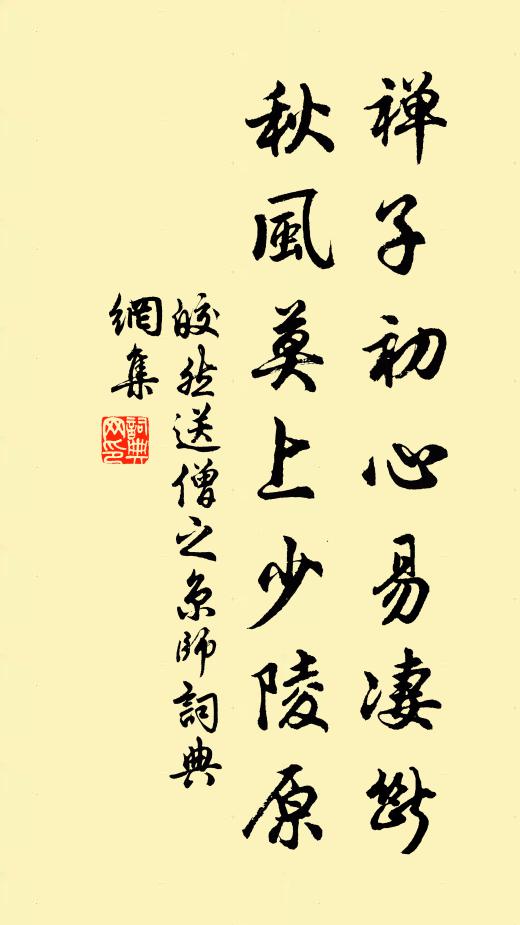 禅子初心易凄斷
秋風莫上少陵原
皎然送僧之京師詞典
網集
詞典
网印